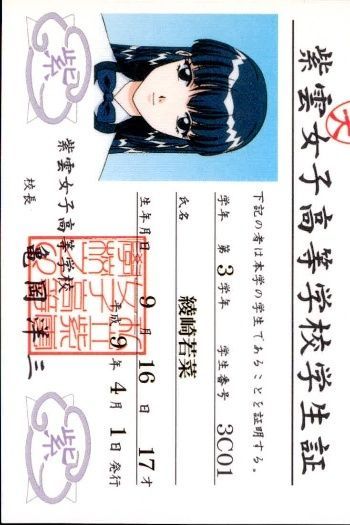 紫雲女子高等学校学生証
下記の者は本学の学生であることを証明する。
学年 第 3 学年 学生番号 3C01
氏名 綾崎若菜
生年月日 9 月 16 日 17 才
平成 9 年 4 月 1 日 発行
紫雲女子高等学校
校長 亀岡洋三
紫
紫